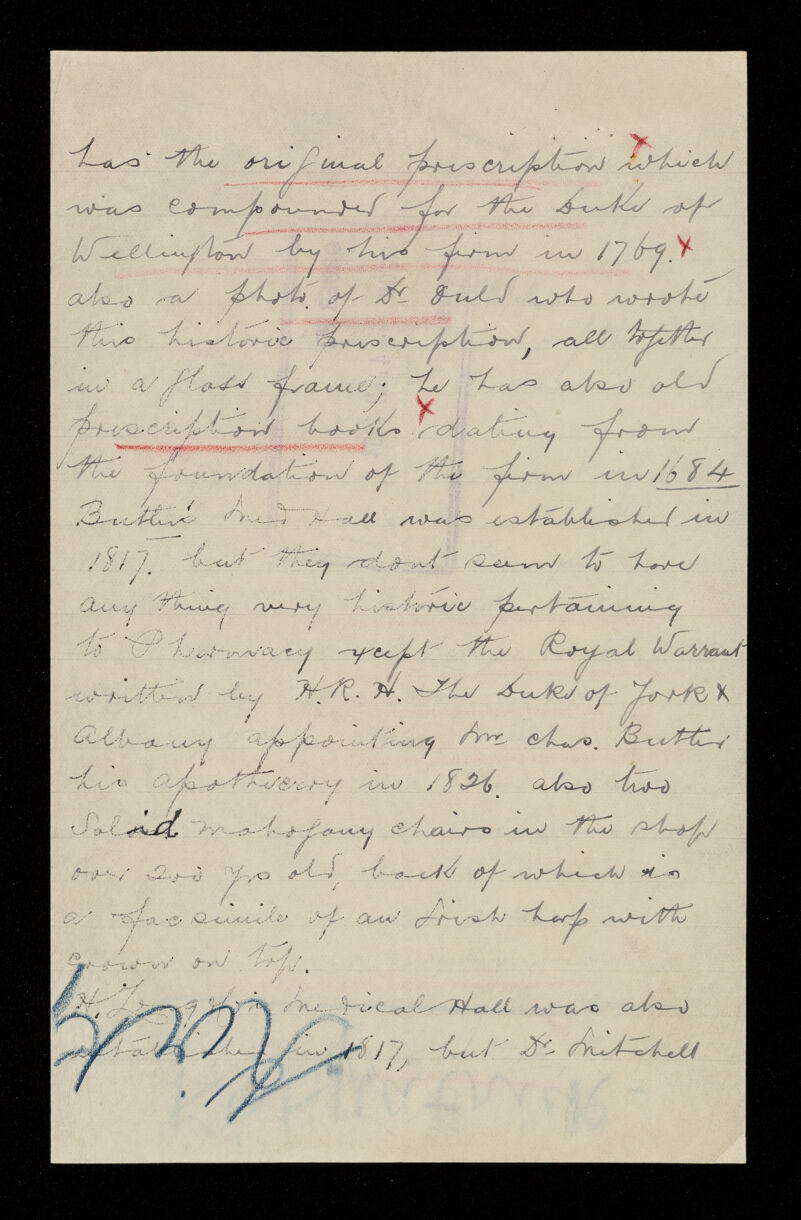 has the original prescription which
was compounded for the Duke of
Wellington by his firm in 1769.
also a photo. of Dr. Ould who wrote
this historic prescription, all together
in a glass frame; he has also old
prescription books dating from
the foundation of the firm in 1684
Butler's Med Hall was established in
1817. but they dont seem to have
any thing very historic pertaining
to Pharmacy xcept the Royal Warrant
written by H.R.H. The Duke of York &
Albany appointing Mr. Chas. Butler
his apothecary in 1826. also two
Solid mahogany chairs in the shop
over 200 yrs old, back of which is
a facsimile of an Irish harp with
crown on top.
H. Medical Hall was also
established in 1817, but Dr. Mitchell